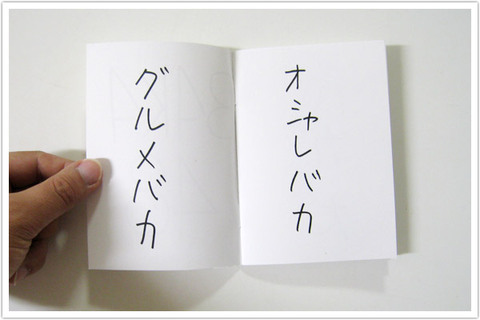 オシャレバカ
グルメバカ